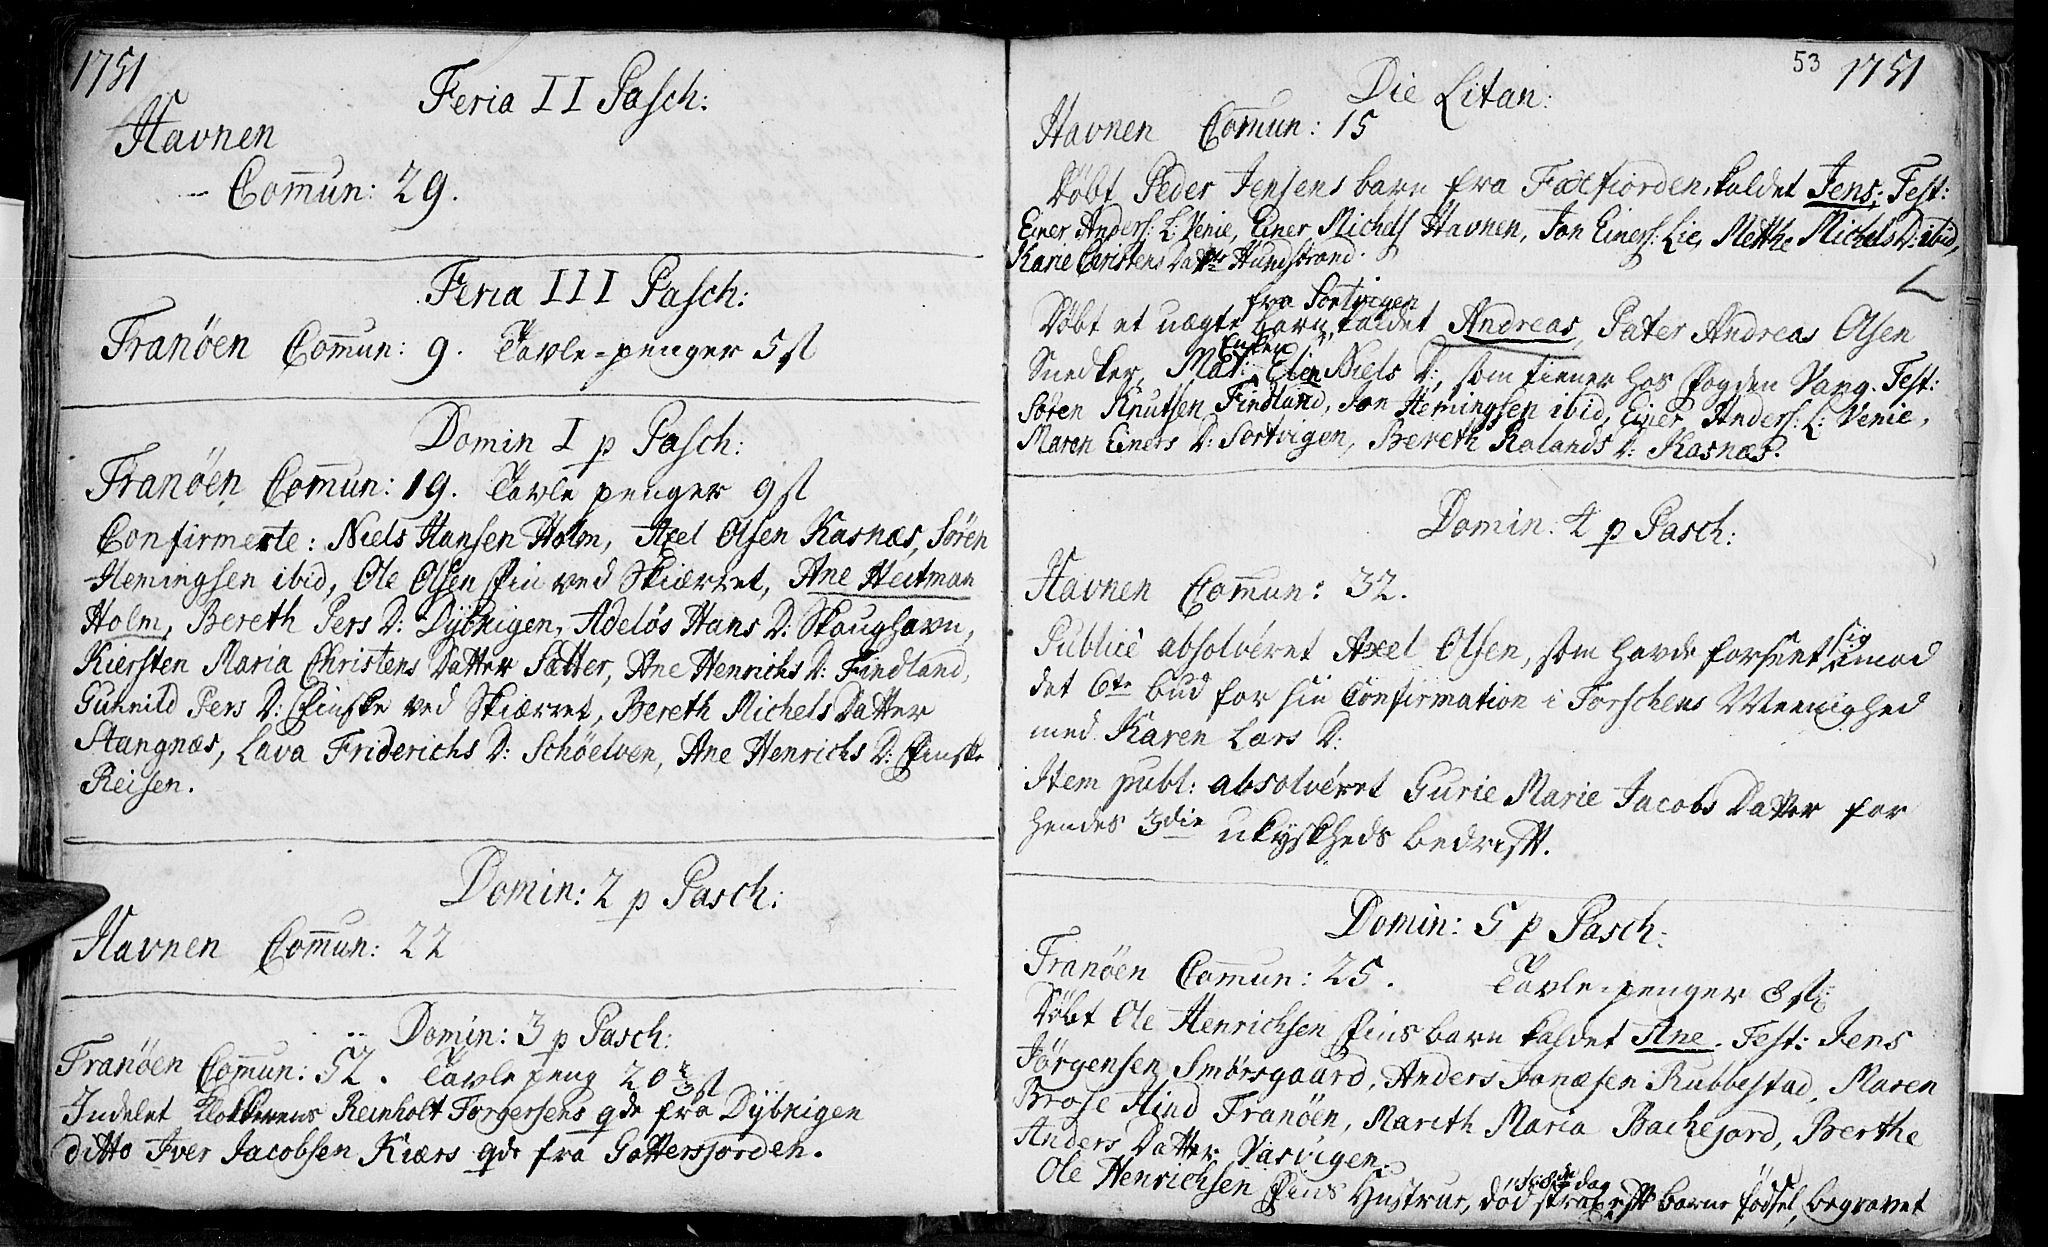 1751
Feria II Pasch:
Havnen
Commun: 29.
Feria III Pasch:
Tranöen Commun: 9. Tavle-penger 5 st
Domin I p Pasch:
Tranöen Commun: 19. Tavle penger 9 st
Confirmerte: Niels Hansen Holm, Axel Olsen Kasnæs, Sören
Hemingsen ibid, Ole Olsen Fin ved Skiærret, Ane Heitman
Holm, Bereth Pers D: Dybvigen, Adelös Hans D: Skoughavn,
Kiersten Maria Christens Datter Satter, Ane Henrichs D: Findland,
Gunnild Pers D: Finske ved Skiærret, Bereth Michels Datter
Stangnæs, Lava Friderichs D: Schöelven, Ane Henrichs D: Finske
Reisen.
Domin: 2 p Pasch:
Havnen Commun: 22
Domin: 3 p Pasch:
Tranöen Commun: 52. Tavle peng 20 st
Indelet Klokkerens Reinholt Torgersens qde fra Dybvigen
ditto Iver Jacobsen Kiærs qde fra Gottersfjorden.
53 1751
Die Litan:
Havnen Commun: 15
Döbt Peder Jensens barn fra Faxfiorden, kaldet Jens; Test:
Einer Anders: L: Venie, Einer Michels Havnen, Jon Einers: Lie, Metthe Michels D: ibid,
Karie Christens Datter Hundstrand.
fra Sortvigen
Döbt et uægte barn, kaldet Andreas, Pater Andreas Olsen
Enken
Snedker, Mat: Elen Niels D:, som tiener hos Fogden Vang. Test:
Sören Knutsen Findland, Jon Hemingsen ibid, Einer Anders: L: Venie,
Maren Einers D: Sortvigen, Bereth Rolands D: Kasnæs.
Domin: 4 p Pasch:
Havnen Commun: 32.
Publicè absolveret Axel Olsen, som havde forseet sig imod
det 6te bud for sin Confirmation i Torschens Meenighed
med Karen Lars D:
Item publ: absolveret Gurie Marie Jacobs Datter for
hendes 3die ukyskheds bedrift.
Domin: 5 p Pasch:
Tranöen Commun: 25. Tavle-penger 8 st
Döbt Ole Henrichsen Fins barn kaldet Ane. Test: Jens
Jörgensen Smörsgaard, Anders Jonæsen Rubbestad, Maren
Brose Hind Tranöen, Marith Maria Backejord, Berthe
Anders Datter Vasvigen.
Ole Henrichsen Fins Hustrue, död strax efter barns födsel, begravet